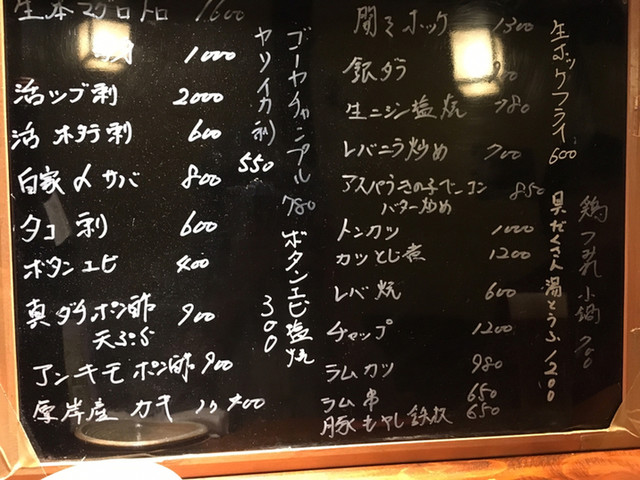 生本マグロトロ 1600
1000
活ツブ刺 2000
活ホタテ刺 600
自家〆サバ 800
タコ刺 600
ボタンエビ 400
真ダチポン酢 900
天ぷら
アンキモポン酢 900
厚岸産カキ 1ケ400
ヤリイカ刺 550
ゴーヤチャンプル 780
ボタンエビ塩焼 300
開きホッケ 1300
銀ダラ
生ニシン塩焼 780
レバニラ炒め 700
アスパラきの子ベーコン 850
バター炒め
トンカツ 1000
カツとじ煮 1200
レバ焼 600
チャップ 1200
ラムカツ 980
ラム串 650
豚もやし鉄板 650
生ホッケフライ 600
具だくさん湯とうふ 1200
鶏つみれ小鍋 700